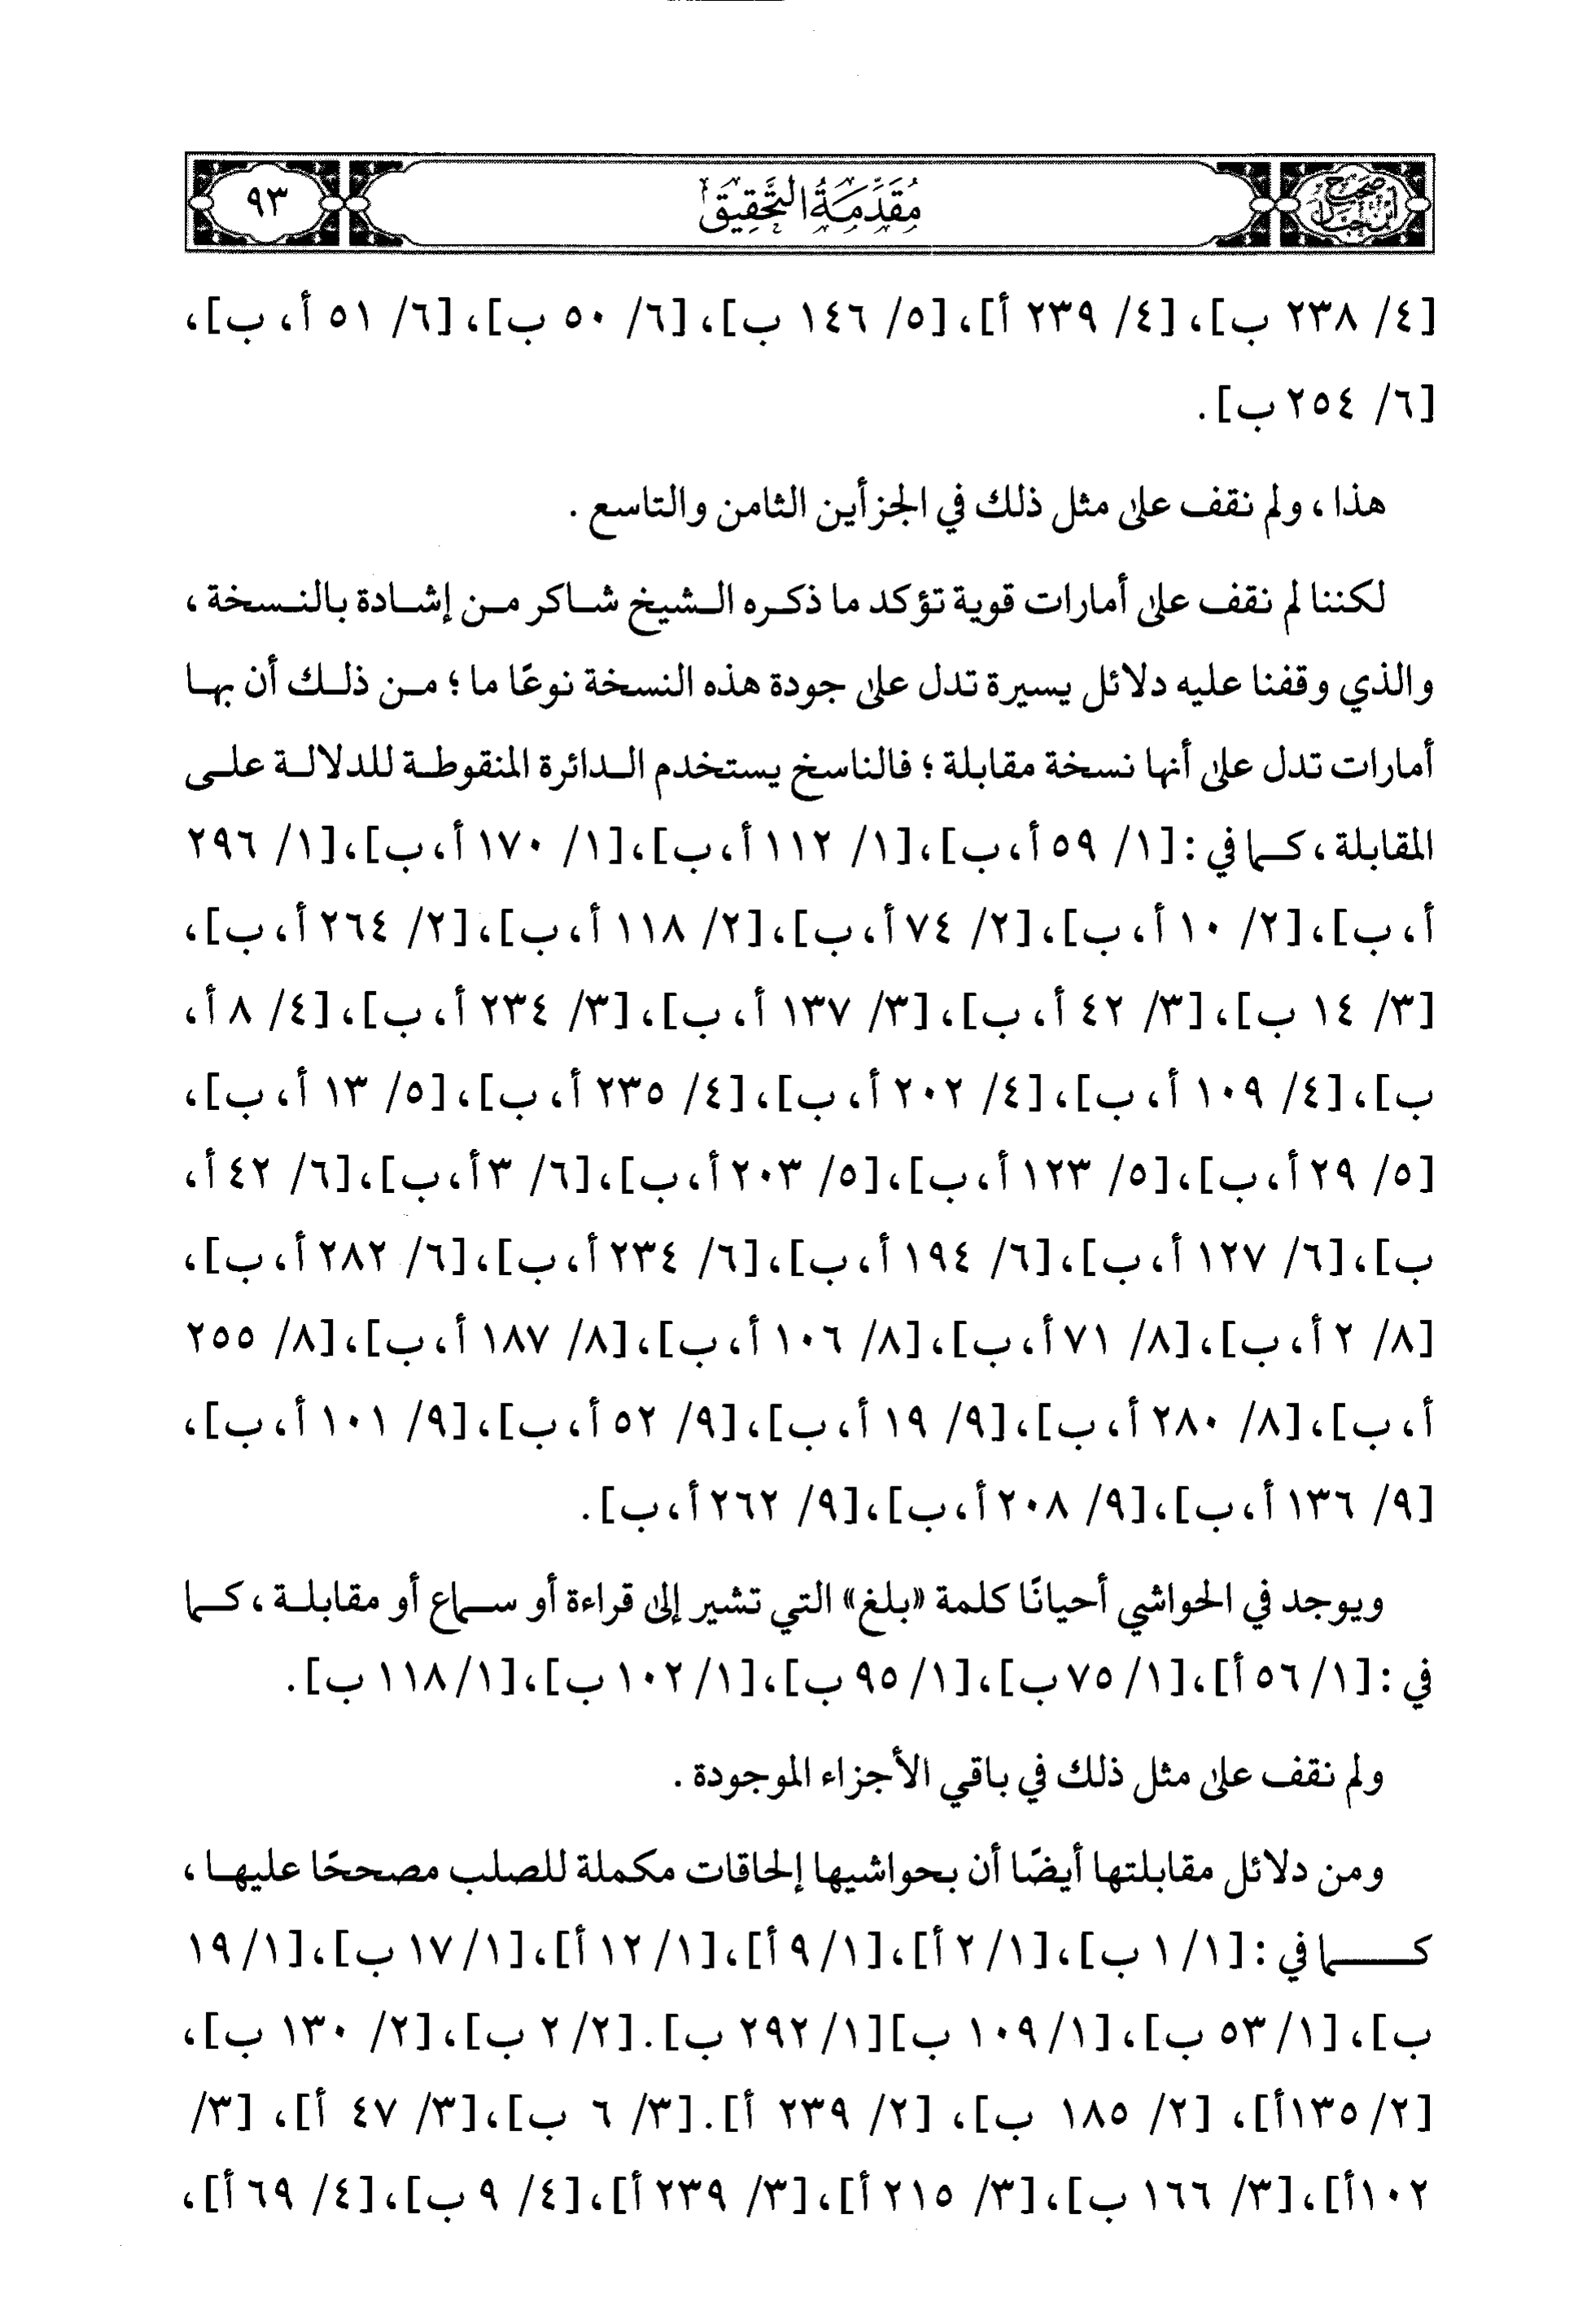 صحيح ابن حبان
مُقَدِّمَةُ التَّحْقِيق
٩٣
[٤/ ٢٣٨ ب]، [٤/ ٢٣٩ أ]، [٥/ ١٤٦ ب]، [٦/ ٥٠ ب]، [٦/ ٥١ أ، ب]،
[٦/ ٢٥٤ ب].
هذا، ولم نقف على مثل ذلك في الجزأين الثامن والتاسع.
لكننا لم نقف على أمارات قوية تؤكد ما ذكره الشيخ شاكر من إشادة بالنسخة،
والذي وقفنا عليه دلائل يسيرة تدل على جودة هذه النسخة نوعًا ما؛ من ذلك أن بها
أمارات تدل على أنها نسخة مقابلة؛ فالناسخ يستخدم الدائرة المنقوطة للدلالة على
المقابلة، كما في: [١/ ٥٩ أ، ب]، [١/ ١١٢ أ، ب]، [١/ ١٧٠ أ، ب]، [١/ ٢٩٦
أ، ب]، [٢/ ١٠ أ، ب]، [٢/ ٧٤ أ، ب]، [٢/ ١١٨ أ، ب]، [٢/ ٢٦٤ أ، ب]،
[٣/ ١٤ ب]، [٣/ ٤٢ أ، ب]، [٣/ ١٣٧ أ، ب]، [٣/ ٢٣٤ أ، ب]، [٤/ ٨ أ،
ب]، [٤/ ١٠٩ أ، ب]، [٤/ ٢٠٢ أ، ب]، [٤/ ٢٣٥ أ، ب]، [٥/ ١٣ أ، ب]،
[٥/ ٢٩ أ، ب]، [٥/ ١٢٣ أ، ب]، [٥/ ٢٠٣ أ، ب]، [٦/ ٣ أ، ب]، [٦/ ٤٢ أ،
ب]، [٦/ ١٢٧ أ، ب]، [٦/ ١٩٤ أ، ب]، [٦/ ٢٣٤ أ، ب]، [٦/ ٢٨٢ أ، ب]،
[٨/ ٢ أ، ب]، [٨/ ٧١ أ، ب]، [٨/ ١٠٦ أ، ب]، [٨/ ١٨٧ أ، ب]، [٨/ ٢٥٥
أ، ب]، [٨/ ٢٨٠ أ، ب]، [٩/ ١٩ أ، ب]، [٩/ ٥٢ أ، ب]، [٩/ ١٠١ أ، ب]،
[٩/ ١٣٦ أ، ب]، [٩/ ٢٠٨ أ، ب]، [٩/ ٢٦٢ أ، ب].
ويوجد في الحواشي أحيانًا كلمة «بلغ» التي تشير إلى قراءة أو سماع أو مقابلة، كما
في: [١/ ٥٦ أ]، [١/ ٧٥ ب]، [١/ ٩٥ ب]، [١/ ١٠٢ ب]، [١/ ١١٨ ب].
ولم نقف على مثل ذلك في باقي الأجزاء الموجودة.
ومن دلائل مقابلتها أيضًا أن بحواشيها إلحاقات مكملة للصلب مصححًا عليها،
كما في: [١/ ١ ب]، [١/ ٢ أ]، [١/ ٩ أ]، [١/ ١٢ أ]، [١/ ١٧ ب]، [١/ ١٩
ب]، [١/ ٥٣ ب]، [١/ ١٠٩ ب][١/ ٢٩٢ ب]. [٢/ ٢ ب]، [٢/ ١٣٠ ب]،
[٢/ ١٣٥أ]، [٢/ ١٨٥ ب]، [٢/ ٢٣٩ أ]. [٣/ ٦ ب]، [٣/ ٤٧ أ]، [٣/
١٠٢أ]، [٣/ ١٦٦ ب]، [٣/ ٢١٥ أ]، [٣/ ٢٣٩ أ]، [٤/ ٩ ب]، [٤/ ٦٩ أ]،